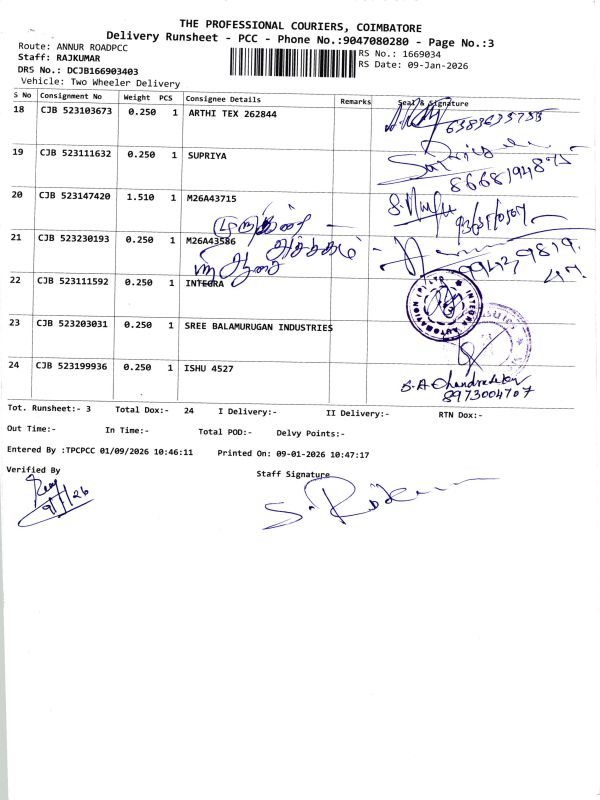 THE PROFESSIONAL COURIERS, COIMBATORE
Delivery Runsheet - PCC - Phone No.:9047080280 - Page No.:3
Route: ANNUR ROADPCC
Staff: RAJKUMAR
DRS No.: DCJB166903403
Vehicle: Two Wheeler Delivery
RS No.: 1669034
RS Date: 09-Jan-2026
S No Consignment No Weight PCS Consignee Details Remarks Seal & Signature
18 CJB 523103673 0.250 1 ARTHI TEX 262844
19 CJB 523111632 0.250 1 SUPRIYA
20 CJB 523147420 1.510 1 M26A43715
21 CJB 523230193 0.250 1 M26A43586
22 CJB 523111592 0.250 1 INTEGRA
INTEGRA AUTOMATION (P) LTD
23 CJB 523203031 0.250 1 SREE BALAMURUGAN INDUSTRIES
24 CJB 523199936 0.250 1 ISHU 4527
8973004707
Tot. Runsheet:- 3 Total Dox:- 24 I Delivery:- II Delivery:- RTN Dox:-
Out Time:- In Time:- Total POD:- Delvy Points:-
Entered By :TPCPCC 01/09/2026 10:46:11 Printed On: 09-01-2026 10:47:17
Verified By Staff Signature
9/1/26